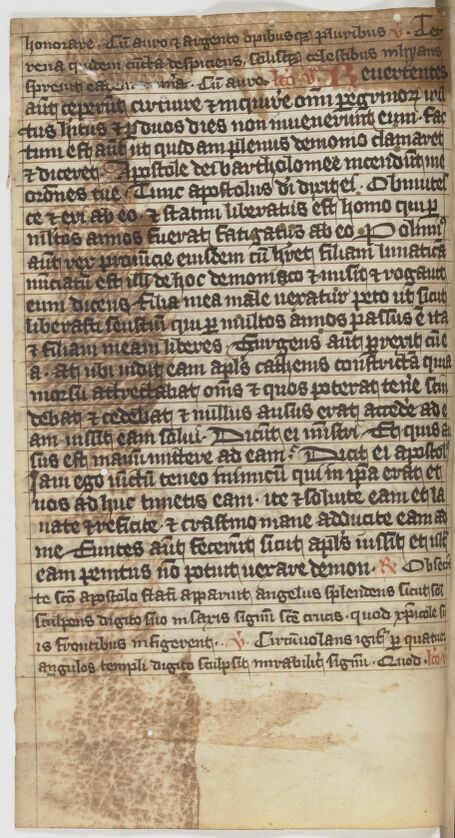 honorare. Cū auro & argento opibusqꝫ pluribus v. Ter
rena quidem cūcta despiciens, solisqꝫ celestibus inhyans
spreuit Cū auro. lc̄o v. Reuertentes
aūt ceperūt circuire & inquire om̄ peregrinoꝝ
tus situs & ꝑ duos dies non inuenerunt eum. fac
tum est aūt ut quidam plenus demonio clamaret
& diceret. Apostole dei bartholomee incendūt me
orōnes tue. Tunc apostolus dn̄i dixit ei. Obmutes
ce & exi ab eo. & statim liberatus est homo qui ꝑ
mltos annos fuerat fatigatus ab eo. Polimiꝰ
aūt rex prouincie eiusdem cū hret filiam lunaticā
nūciatū est illi de hoc demoniaco & misit & rogauit
eum dicens. filia mea male uexatur peto ut sicut
liberasti seustiū qui ꝑ multos annos passus ē ita
& filiam meam liberes. Surgens aūt perrexit cū e
a. at ubi uidit eam apl̄s cathenis constrictā quia
morsu attrectabat om̄s & quos poterat tenē scin
debat & cedebat & nullus ausus erat accedē ad e
am iussit eam solui. Dicūt ei mīstri. Et quis au
sus est manū mittere ad eam. Dicit ei apostolꝰ
Iam ego uīctū teneo inimicū qui in ip̄a erat et
uos adhuc timetis eam. ite & soluite eam et la
uate & reficite. & crastino mane adducite eam ad
me. Euntes aūt fecerūt sicut apl̄s iussit et
eam penitus nō potuit uexare demon. ꝶ Obsecrā
te sc̄o apostolo statī apparuit angelus splendens sicut sol
sculpens digito suo in saxis signū sc̄e crucis. quod xp̄icole su
is frontibus infigerent. v. Circūuolans igit̄ ꝑ quatuor
angulos templi digito sculpsit mirabilit̄ signū. Quod. lc̄o